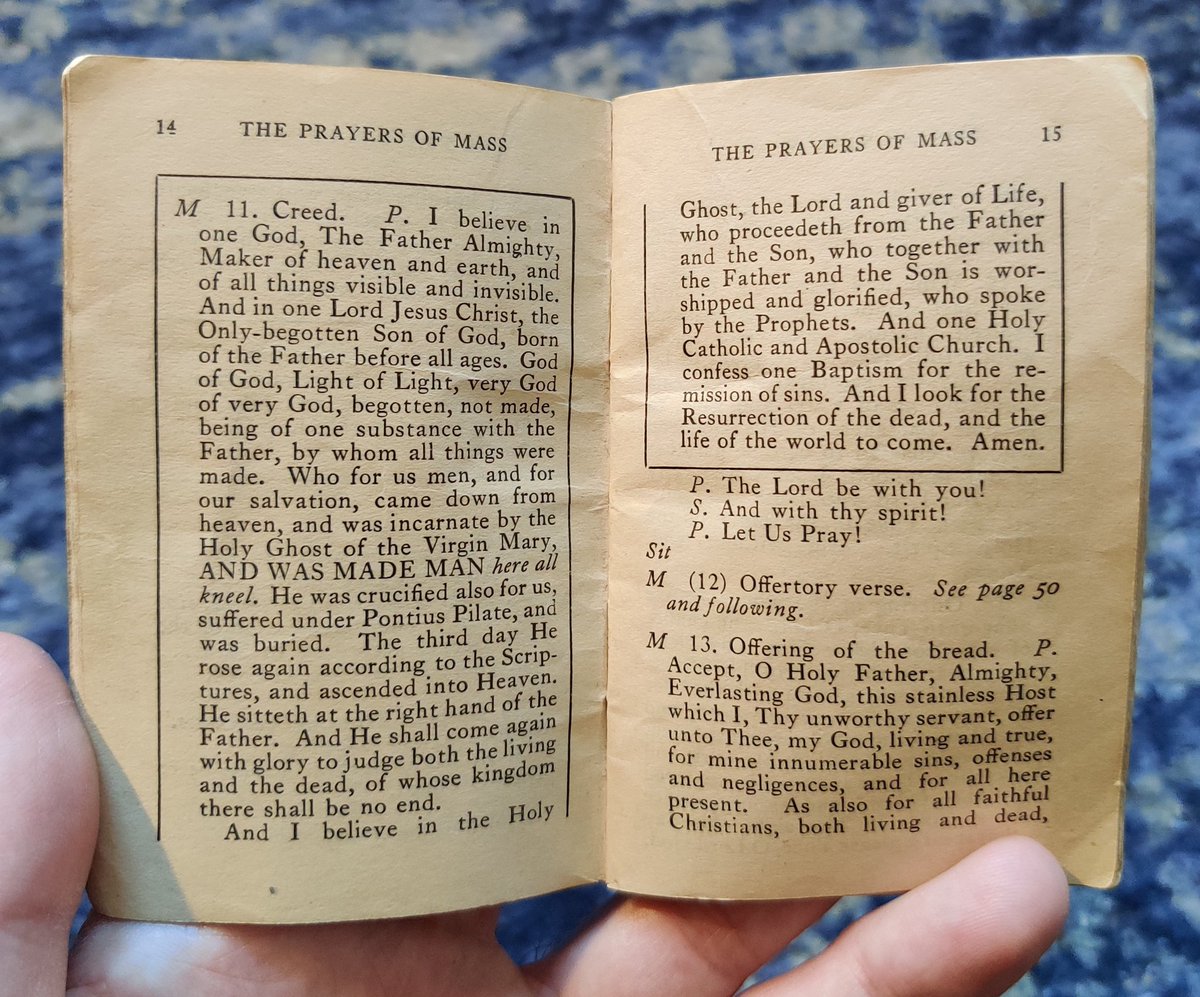 14 THE PRAYERS OF MASS
M 11. Creed. P. I believe in
one God, The Father Almighty,
Maker of heaven and earth, and
of all things visible and invisible.
And in one Lord Jesus Christ, the
Only-begotten Son of God, born
of the Father before all ages. God
of God, Light of Light, very God
of very God, begotten, not made,
being of one substance with the
Father, by whom all things were
made. Who for us men, and for
our salvation, came down from
heaven, and was incarnate by the
Holy Ghost of the Virgin Mary,
AND WAS MADE MAN here all
kneel. He was crucified also for us,
suffered under Pontius Pilate, and
was buried. The third day He
rose again according to the Scrip-
tures, and ascended into Heaven.
He sitteth at the right hand of the
Father. And He shall come again
with glory to judge both the living
and the dead, of whose kingdom
there shall be no end.
And I believe in the Holy
THE PRAYERS OF MASS 15
Ghost, the Lord and giver of Life,
who proceedeth from the Father
and the Son, who together with
the Father and the Son is wor-
shipped and glorified, who spoke
by the Prophets. And one Holy
Catholic and Apostolic Church. I
confess one Baptism for the re-
mission of sins. And I look for the
Resurrection of the dead, and the
life of the world to come. Amen.
P. The Lord be with you!
S. And with thy spirit!
P. Let Us Pray!
Sit
M (12) Offertory verse. See page 50
and following.
M 13. Offering of the bread. P.
Accept, O Holy Father, Almighty,
Everlasting God, this stainless Host
which I, Thy unworthy servant, offer
unto Thee, my God, living and true,
for mine innumerable sins, offenses
and negligences, and for all here
present. As also for all faithful
Christians, both living and dead,